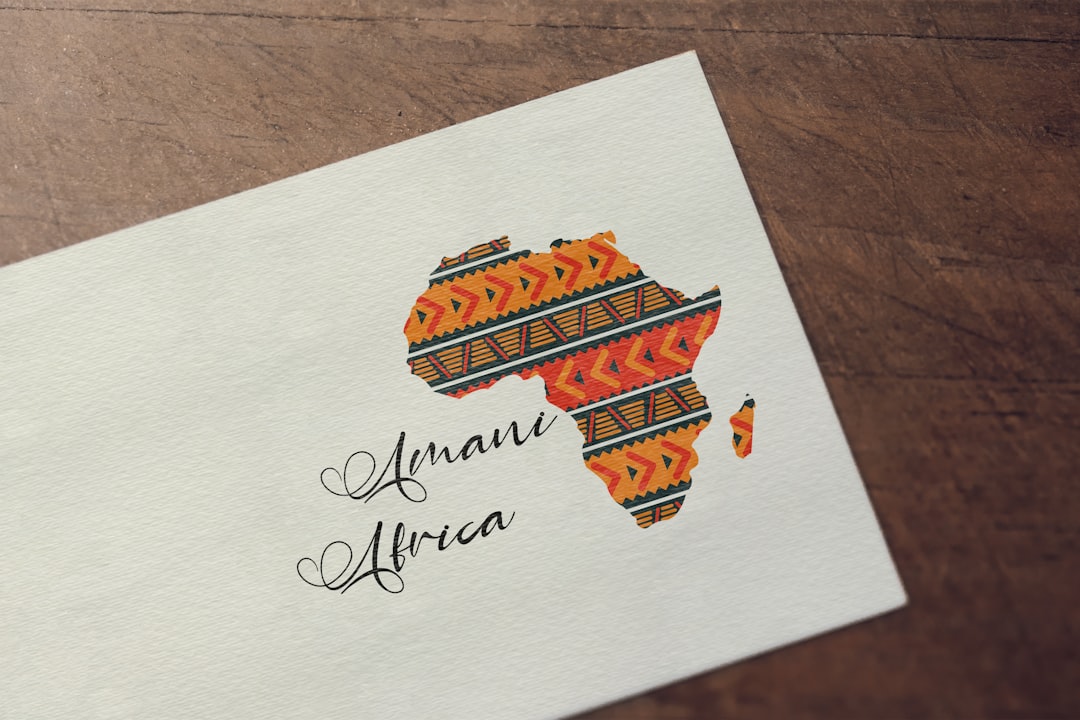 Amani
Africa